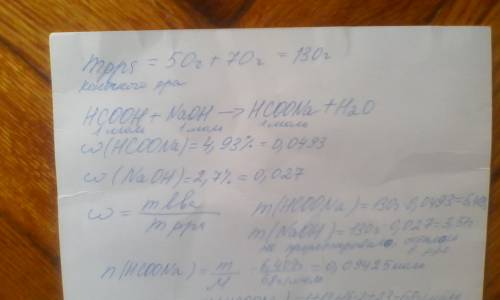 mрра = 50г + 70г = 130г
конечного рра
HCOOH + NaOH → HCOONa + H2O
1 моль 1 моль 1 моль
ω(HCOONa) = 4,93% = 0,0493
ω(NaOH) = 2,7% = 0,027
ω = mвва / mрра
m(HCOONa) = 130г·0,0493 =
m(NaOH) = 130г·0,027 = 3,51г
не прореагировало, осталось
в рре
n(HCOONa) = m/M = = 0,09425моль